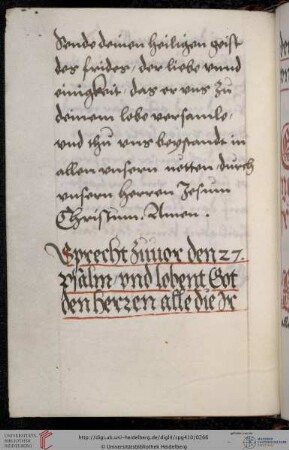 Sende deinen heiligen geist
des frides, der liebe vnnd
einigkeit, das er vns zu
deinem lobe versamle,
vnd thu vns beystandt in
allen vnsern nötten, durch
vnsern herren Jesum
Christum. Amen.
Sprecht zuuor den 27.
Psalm, vnd lobent Got
den herren alle die Ir
UNIVERSITÄTS-
BIBLIOTHEK
HEIDELBERG
© Universitätsbibliothek Heidelberg